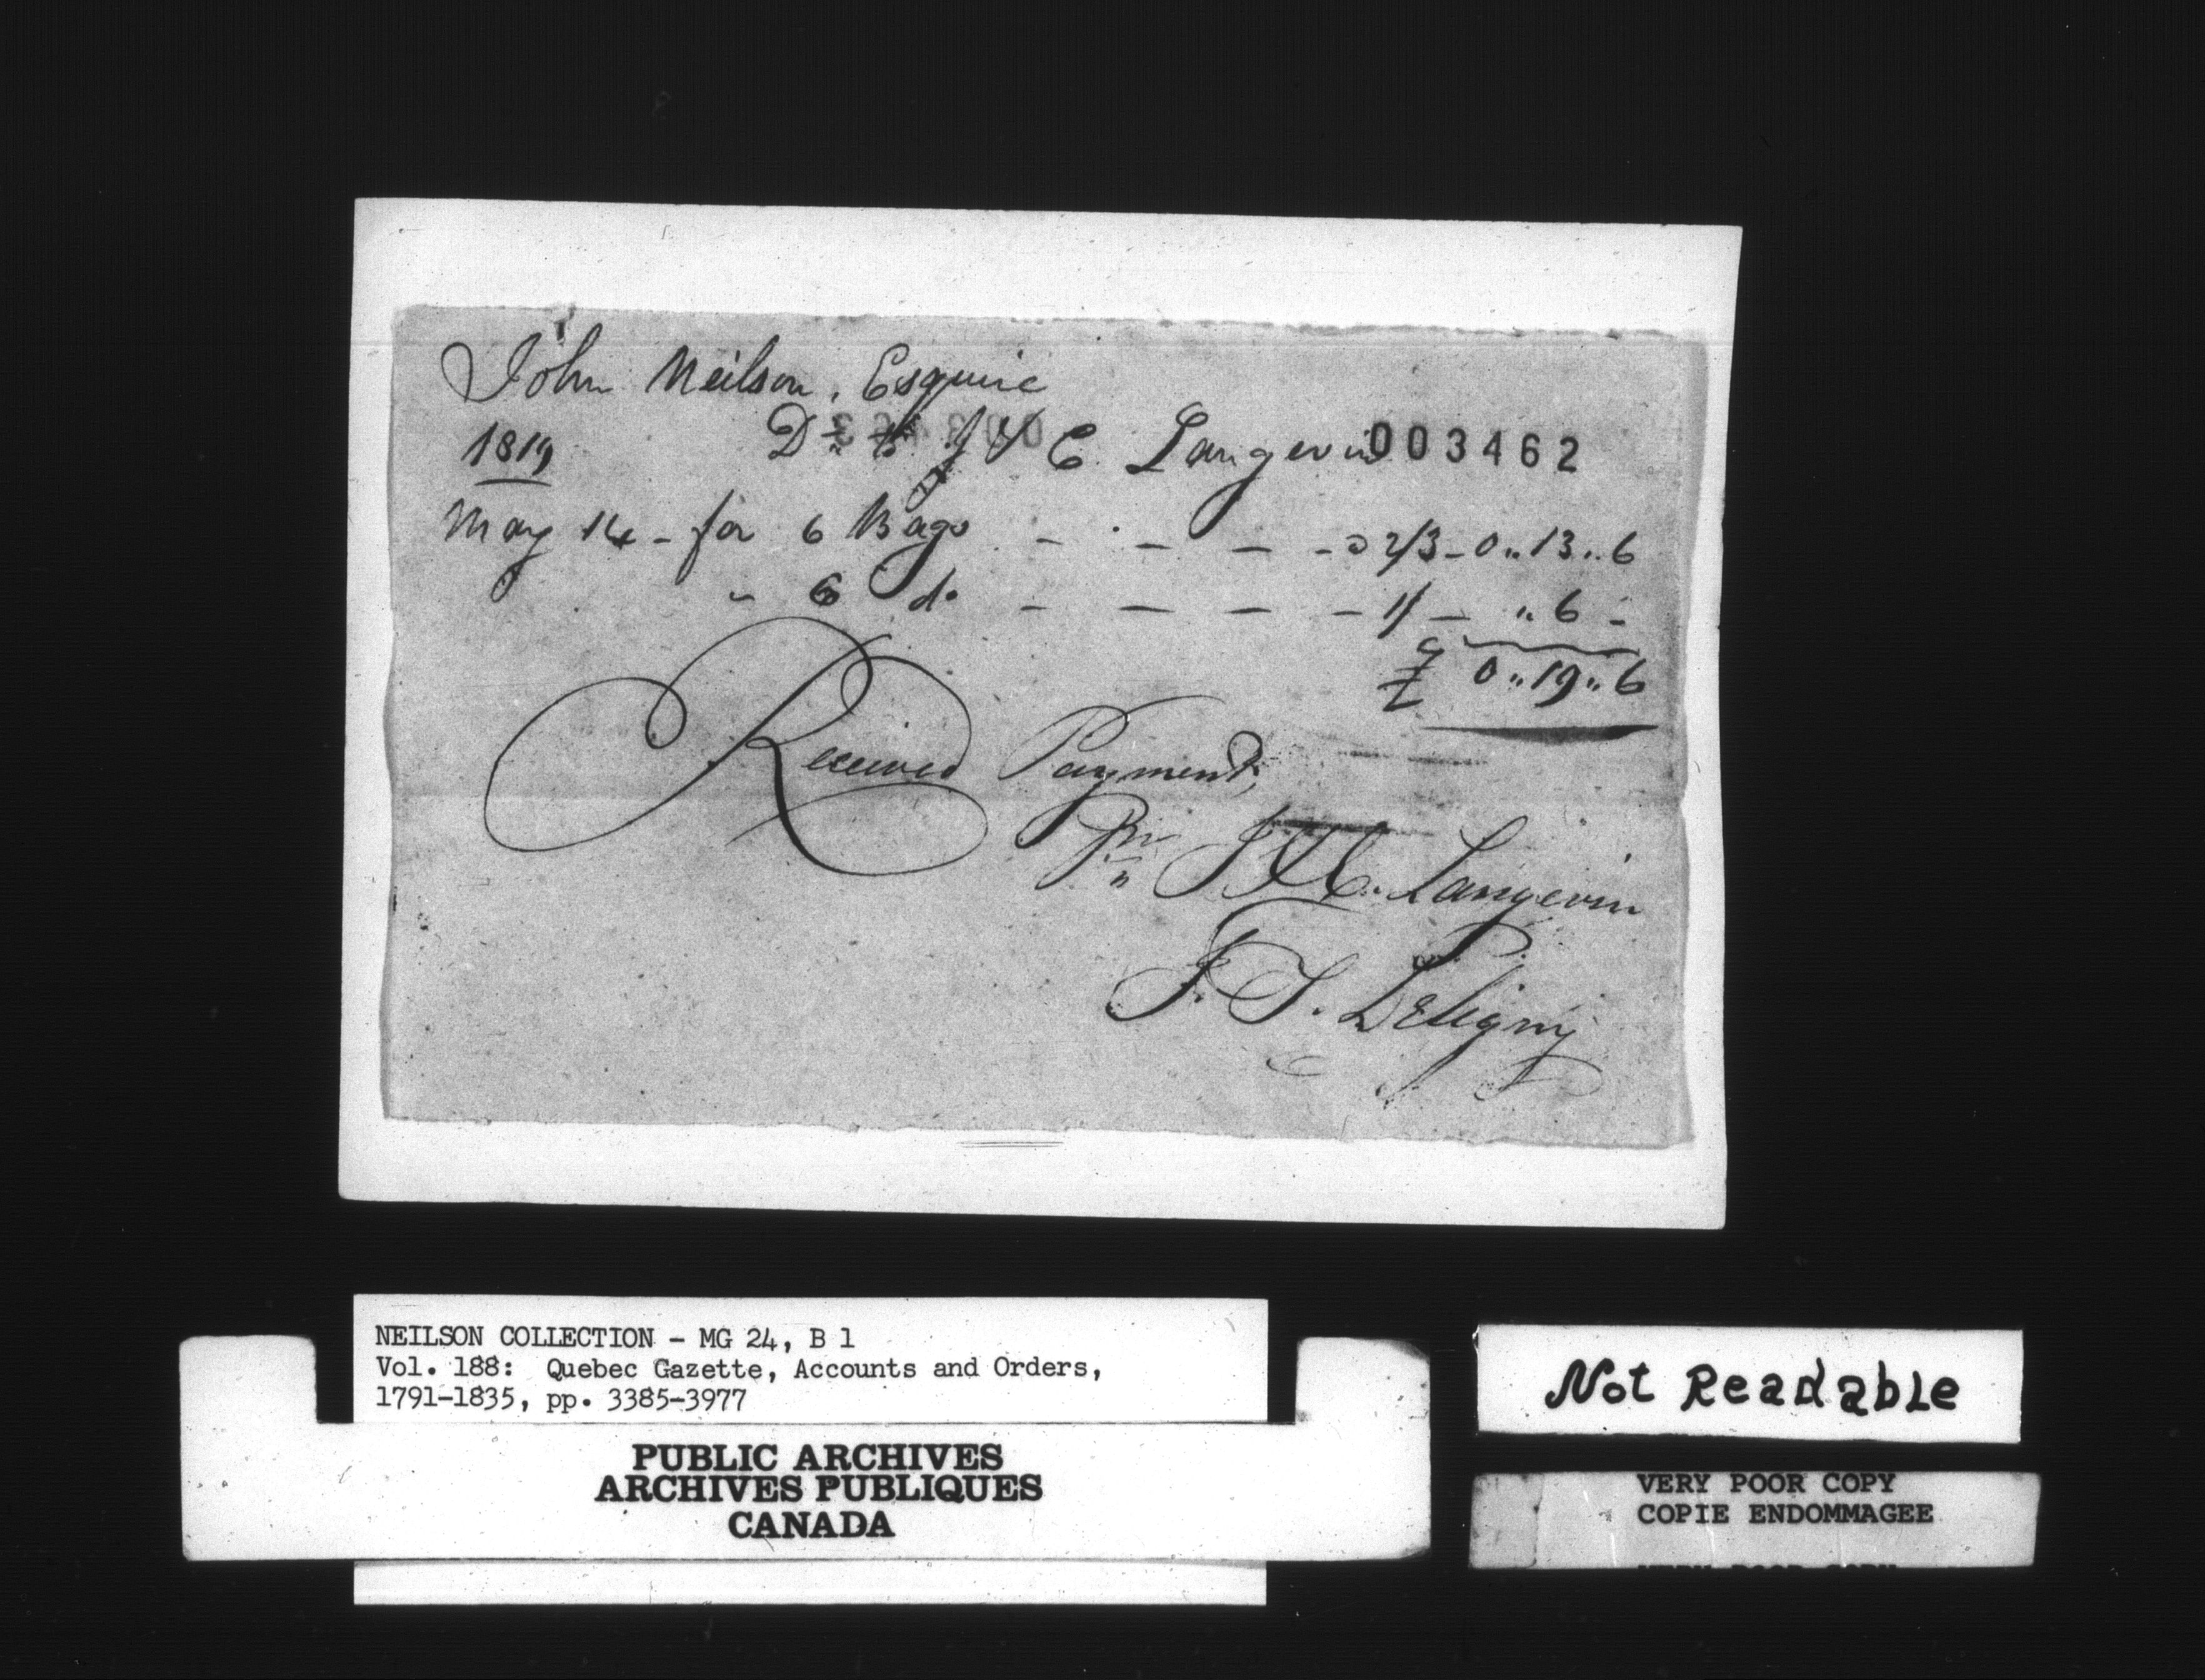 John Neilson, Esquire
1819 Dr to J & C Langevin 003462
May 14 - for 6 Bags - - - - @ 2/3 - 0 " 13 " 6
" 6 do - - - - 1/ - " 6 -
£ 0 " 19 " 6
Received Payment,
Pr J & C. Langevin
F. T. Deligny
NEILSON COLLECTION - MG 24, B 1
Vol. 188: Quebec Gazette, Accounts and Orders,
1791-1835, pp. 3385-3977
PUBLIC ARCHIVES
ARCHIVES PUBLIQUES
CANADA
Not Readable
VERY POOR COPY
COPIE ENDOMMAGEE